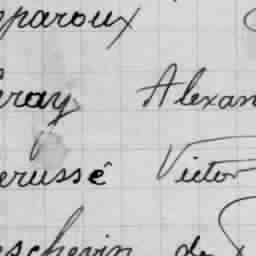 eparoux
eray Alexan
erussé Victor
eschevin de